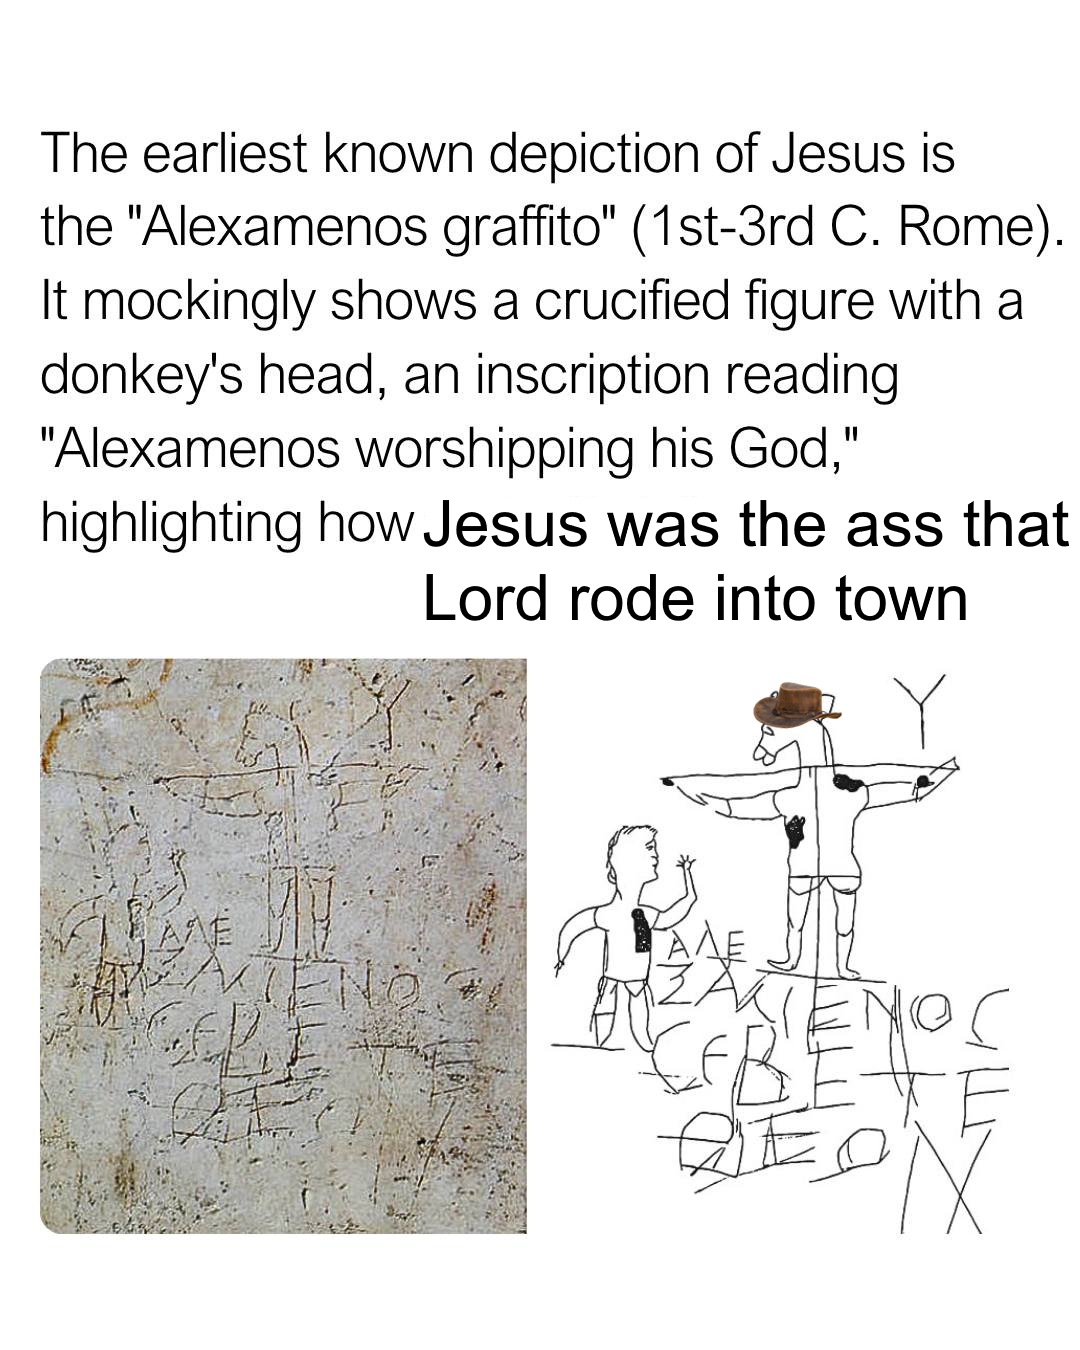 The earliest known depiction of Jesus is
the "Alexamenos graffito" (1st-3rd C. Rome).
It mockingly shows a crucified figure with a
donkey's head, an inscription reading
"Alexamenos worshipping his God,"
highlighting how Jesus was the ass that
Lord rode into town
Υ
ΑΛΕ
ΞΑΜΕΝΟC
CΕΒΕΤΕ
ΘΕΟΝ
Υ
ΑΛΕ
ΞΑΜΕΝΟC
CΕΒΕΤΕ
ΘΕΟΝ